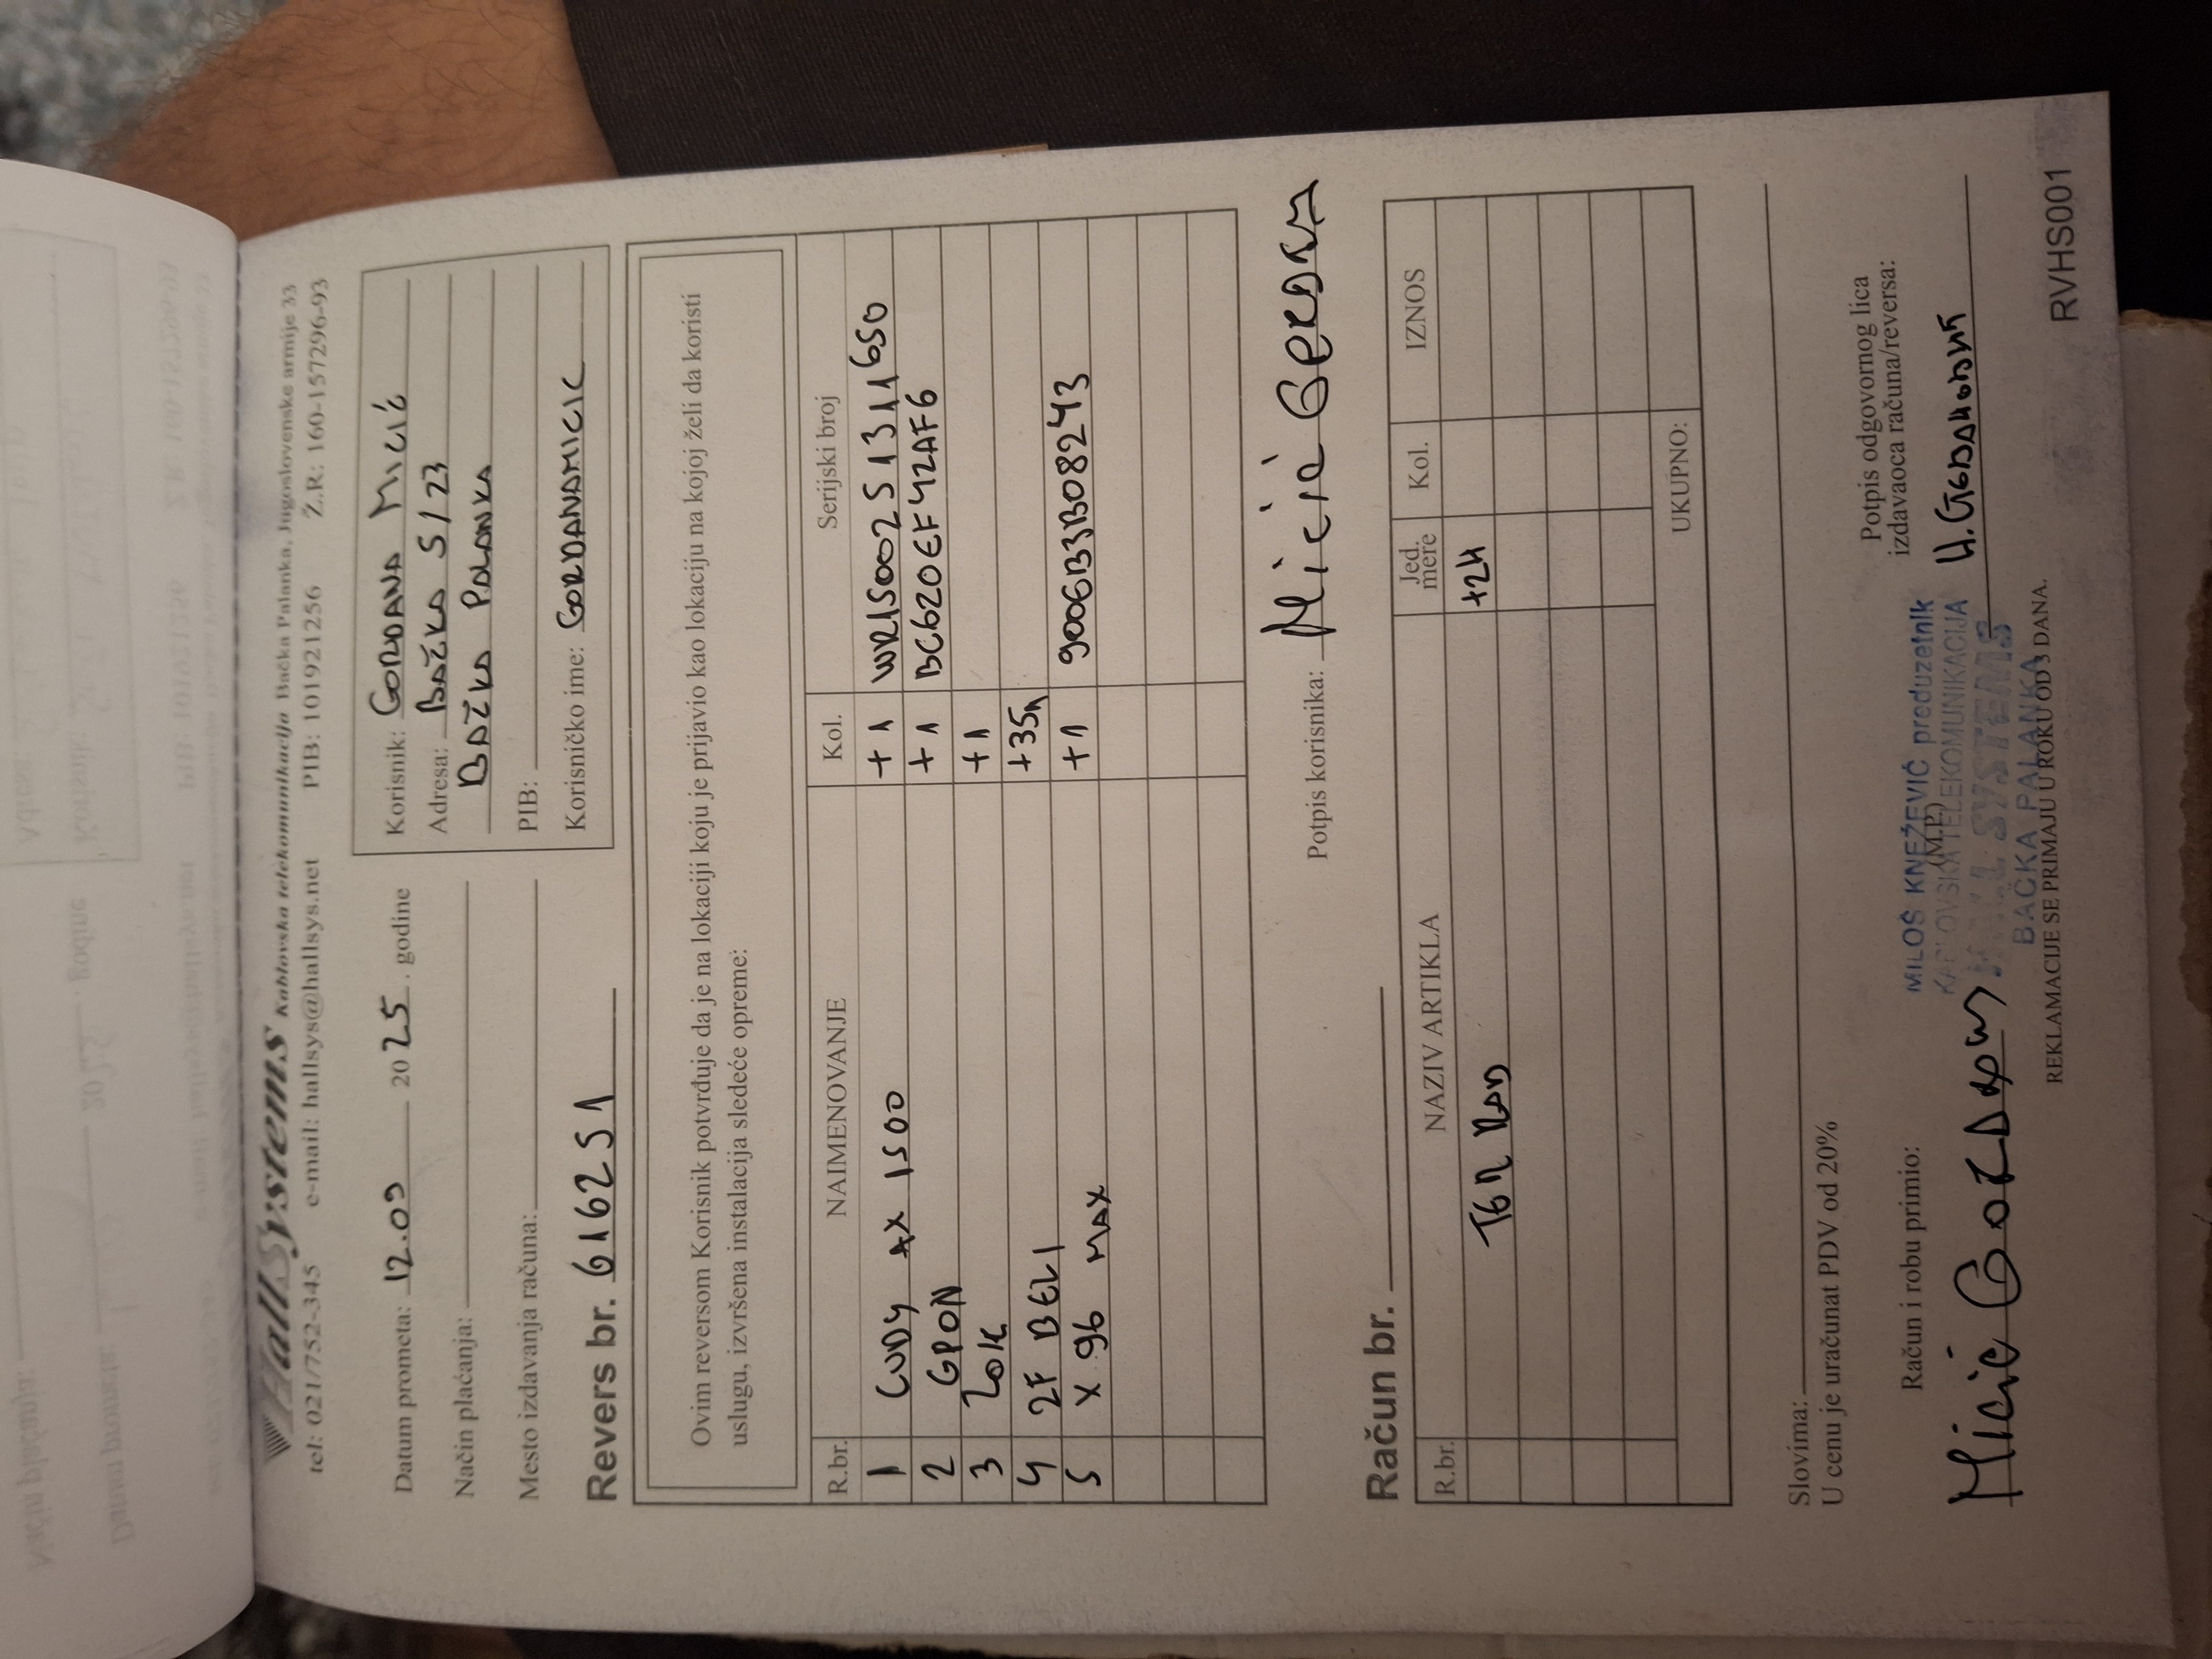 HallSystems Kablovska telekomunikacija Bačka Palanka, Jugoslovenske armije 33
tel: 021/752-345 e-mail: hallsys@hallsys.net PIB: 101921256 Ž.R: 160-157296-93
Datum prometa: 12.09 2025. godine
Način plaćanja:
Mesto izdavanja računa:
Korisnik: GORDANA MICIĆ
Adresa: BAČKA 5/23
BAČKA PALANKA
PIB:
Korisničko ime: GORDANAMICIC
Revers br. 616251
Ovim reversom Korisnik potvrđuje da je na lokaciji koju je prijavio kao lokaciju na kojoj želi da koristi
uslugu, izvršena instalacija sledeće opreme:
R.br. NAIMENOVANJE Kol. Serijski broj
1 CUDY AX 1500 +1 WR1500251311650
2 GPON +1 BC620EF42AF6
3 ZOK +1
4 2F BELI +35m
5 X 96 MAX +1 9006B3B08243
Potpis korisnika: Micić Gordana
Račun br.
R.br. NAZIV ARTIKLA Jed. mere Kol. IZNOS
+2H
UKUPNO:
Slovima:
U cenu je uračunat PDV od 20%
Račun i robu primio:
Micić Gordana
MILOŠ KNEŽEVIĆ preduzetnik
KABLOVSKA TELEKOMUNIKACIJA
HALL SYSTEMS
BAČKA PALANKA
(M.P.)
Potpis odgovornog lica
izdavaoca računa/reversa:
REKLAMACIJE SE PRIMAJU U ROKU OD 3 DANA.
RVHS001